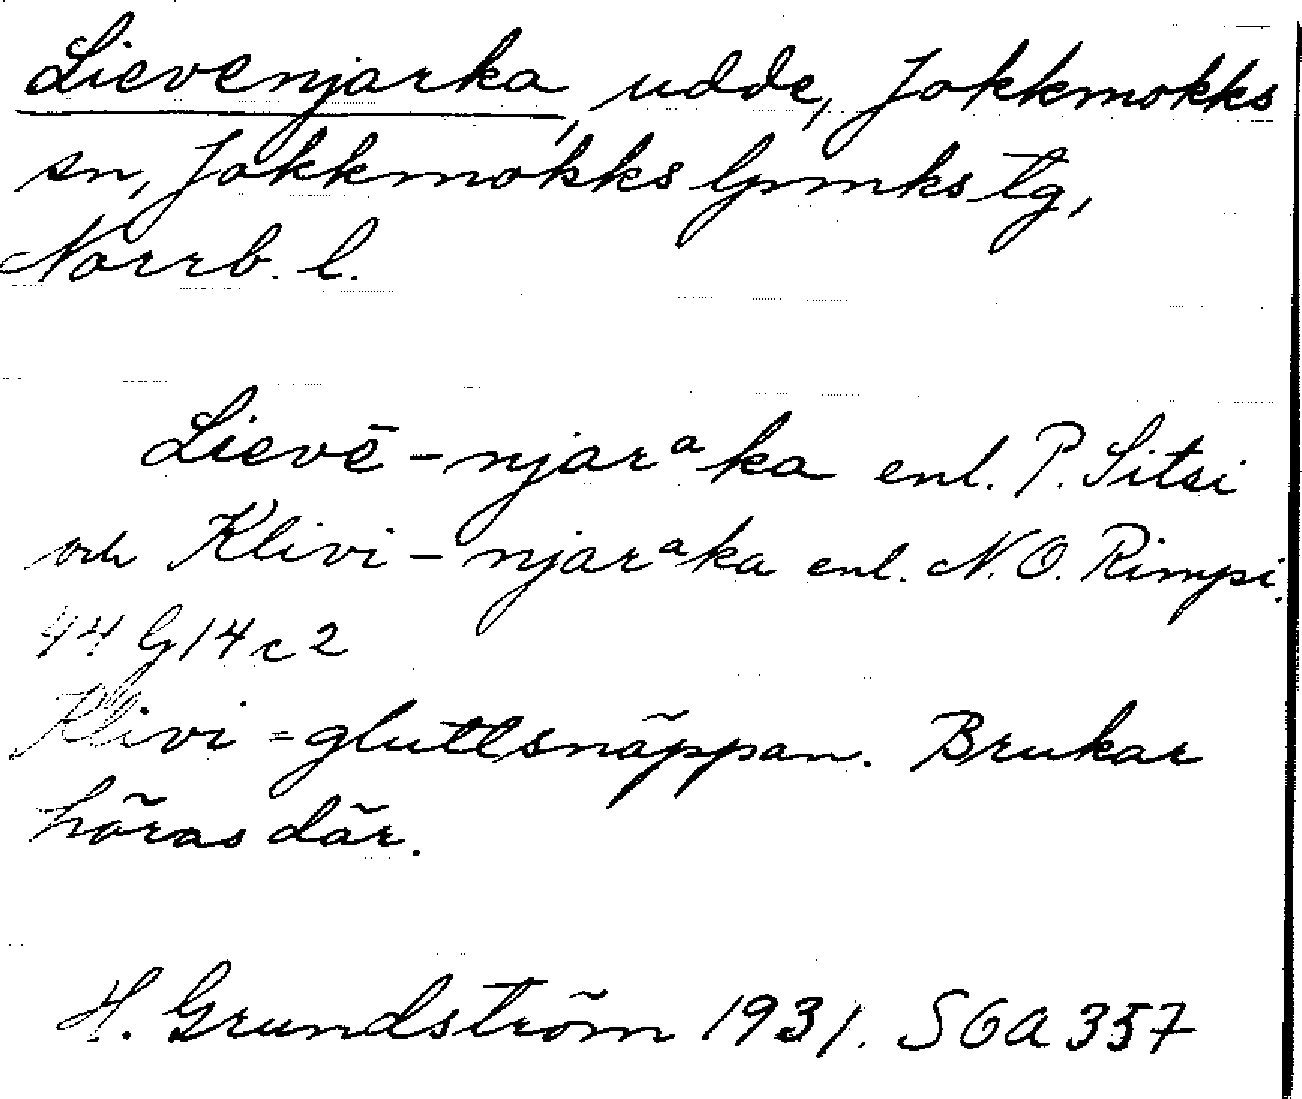 Lievenjarka, udde, Jokkmokks
sn, Jokkmokks lpmks tg,
Norrb. l.
Lievē-njarᵃka enl. P. Sitsi
och Klivi-njarᵃka enl. N. O. Rimpi.
44 G 14 c 2
Klivi = gluttsnäppan. Brukar
höras där.
H. Grundström 1931. SOA 357